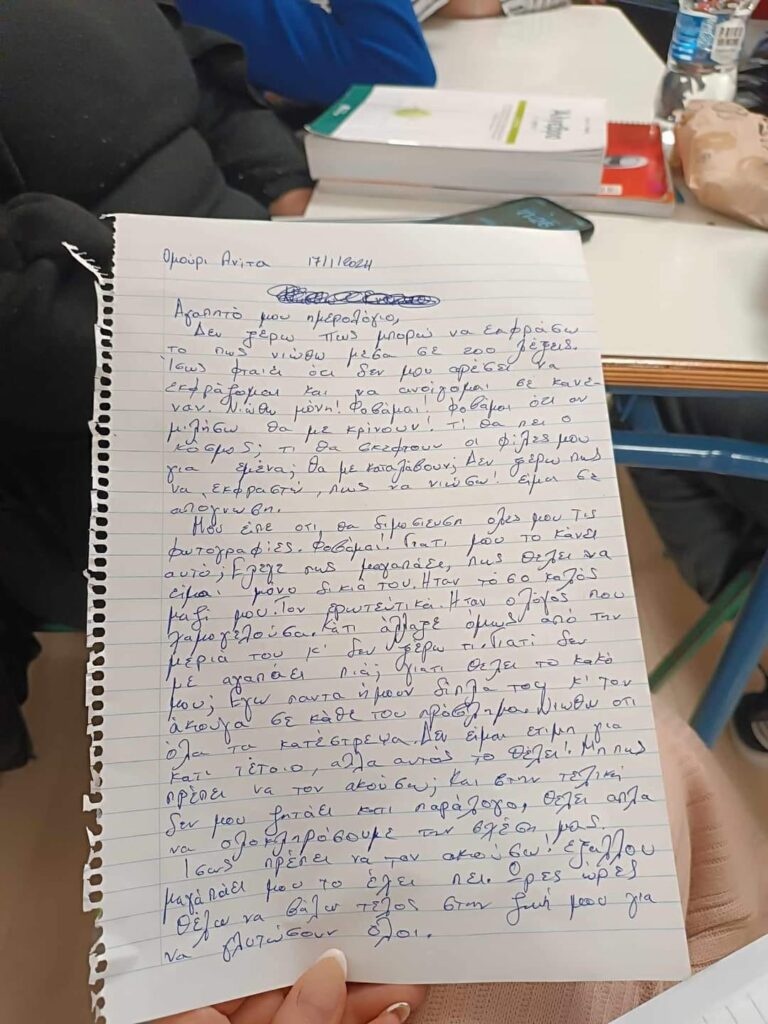 Άλγεβρα
Ομούρι Ανίτα 17/1/2024
Αγαπητό μου ημερολόγιο,
Δεν ξέρω πως μπορώ να εκφράσω
το πως νιώθω μέσα σε 200 λέξεις.
Ίσως φταίει ότι δεν μου αρέσει να
εκφράζομαι και να ανοίγομαι σε κανέ-
ναν. Νιώθω μόνη! Φοβάμαι! Φοβάμαι ότι αν
μιλήσω θα με κρίνουν! Τι θα πει ο
κόσμος; τι θα σκεφτουν οι φίλες μου
για εμένα; θα με καταλάβουν; Δεν ξέρω πως
να εκφραστώ, πως να νιώσω! είμαι σε
απόγνωση.
Μου είπε οτι θα δημοσιευση ολες μου τις
φωτογραφίες. Φοβάμαι! Γιατι μου το κάνει
αυτό; Ελεγε πως μαγαπάει, πως θέλει να
είμαι μόνο δικιά του. Ηταν τόσο καλός
μαζί μου. Τον ερωτεύτικα. Ηταν ο λόγος που
χαμογελούσα. Κάτι άλλαξε όμως από την
μέρια του κ' δεν ξέρω τι. Γιατί δεν
με αγαπάει πιά; γιατι θέλει το κακό
μου; Εγω παντα ήμουν δίπλα του κ' τον
άκουγα σε κάθε του πρόβλημα. Νιώθω οτι
όλα τα κατέστρεψα. Δεν είμαι ετιμη για
κατι τέτοιο, αλλα αυτός το θέλει! Μηπως
πρέπει να τον ακούσω; Και στην τελική
δεν μου ζητάει κατι παράλογο, θέλει απλα
να ολοκληρώσουμε την σχέση μας.
Ισως πρέπει να τον ακούσω! Εξαλλου
μαγαπάει μου το έχει πει. Ώρες ώρες
θέλω να βάλω τέλος στην ζωή μου για
να γλυτώσουν όλοι.